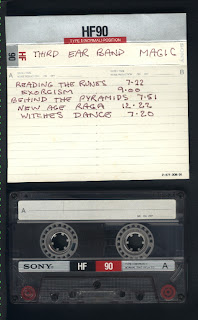 HF90
TYPE I (NORMAL) POSITION
HF 90
THIRD EAR BAND MAGIC
A
B
READING THE RUNES 7-22
EXORCISM 9.00
BEHIND THE PYRAMIDS 7.51
NEW AGE RAGA 12.22
WITCHES DANCE 7.20
A
SONY
HF
90
A